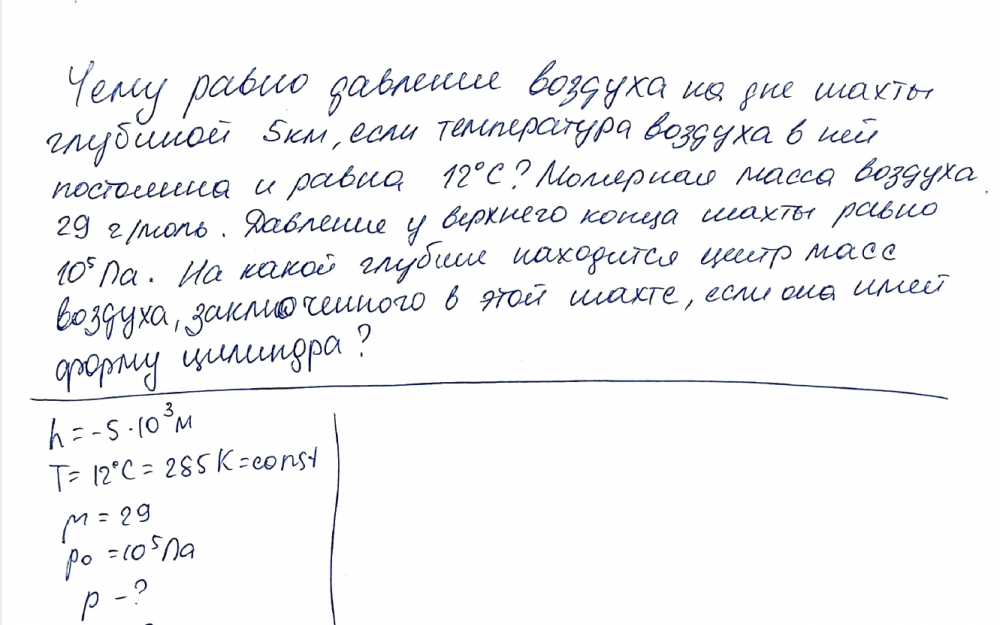 Чему равно давление воздуха на дне шахты
глубиной 5км, если температура воздуха в ней
постоянна и равна 12°С? Молярная масса воздуха
29 г/моль. Давление у верхнего конца шахты равно
10⁵Па. На какой глубине находится центр масс
воздуха, заключенного в этой шахте, если она имей
форму цилиндра?
h = -5·10³м
T = 12°C = 285K = const
μ = 29
p₀ = 10⁵Па
p - ?